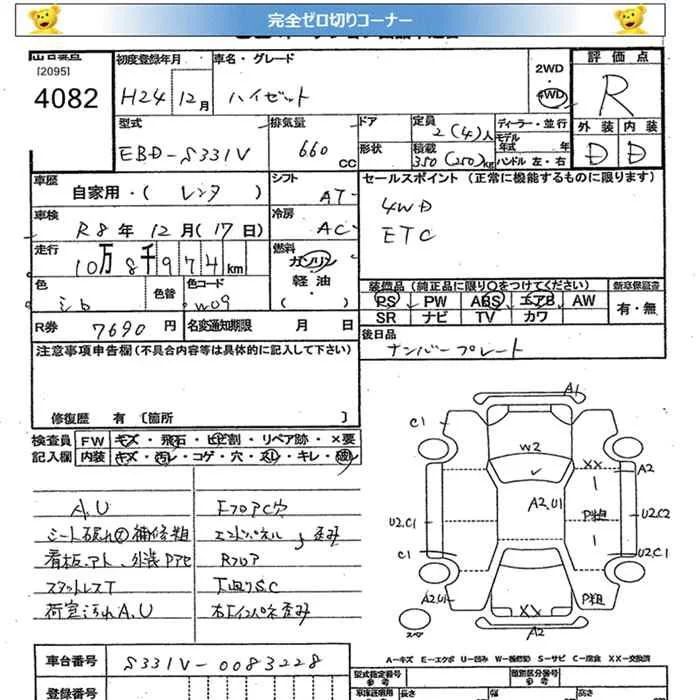 完全ゼロ切りコーナー
[2095]
4082
初度登録年月
H24 12月
車名・グレード
ハイゼット
2WD・4WD
評価点
R
外装 内装
D D
型式
EBD-S331V
排気量
660 CC
ドア
形状
定員
2(4)人
積載
350(250)kg
ディーラー・並行
モデル
年式 年
ハンドル 左・右
車歴
自家用・( レンタ )
シフト
AT
セールスポイント (正常に機能するものに限ります)
4WD
ETC
車検
R8年12月(17日)
冷房
AC
走行
10万8千974km
燃料
ガソリン
軽油
・( )
色
シロ
色替
色コード
W09
装備品(純正品に限り○をつけてください)
PS PW ABS エアB AW
SR ナビ TV カワ
新車保証書
有・無
R券 7690円
名変通知期限 月 日
後日品
ナンバープレート
注意事項申告欄(不具合内容等は具体的に記入して下さい)
修復歴 有 [箇所 ]
検査員
記入欄
FW キズ・飛石・ヒビ割・リペア跡・×要
内装 キズ・汚レ・コゲ・穴・スレ・キレ・破レ
A.U
シート破れ
補修粗
看板アト、外装Pアセ
スタットレスT
荷室汚れA.U
FフロアC穴
エンドパネル
歪み
Rフロア
下廻りS.C
A1
C1
W2
XX
A2
A2.U1
P粗
U2.C1
U2.C2
C1
U2.C1
A2.U1
XX
P粗
A2
スペア
A-キズ E-エクボ U-凹み W-補修跡 S-サビ C-腐食 XX-交換済
車台番号
S331V-0083228
登録番号
型式指定番号
参考
類別区分番号
参考
長さ 幅 高さ